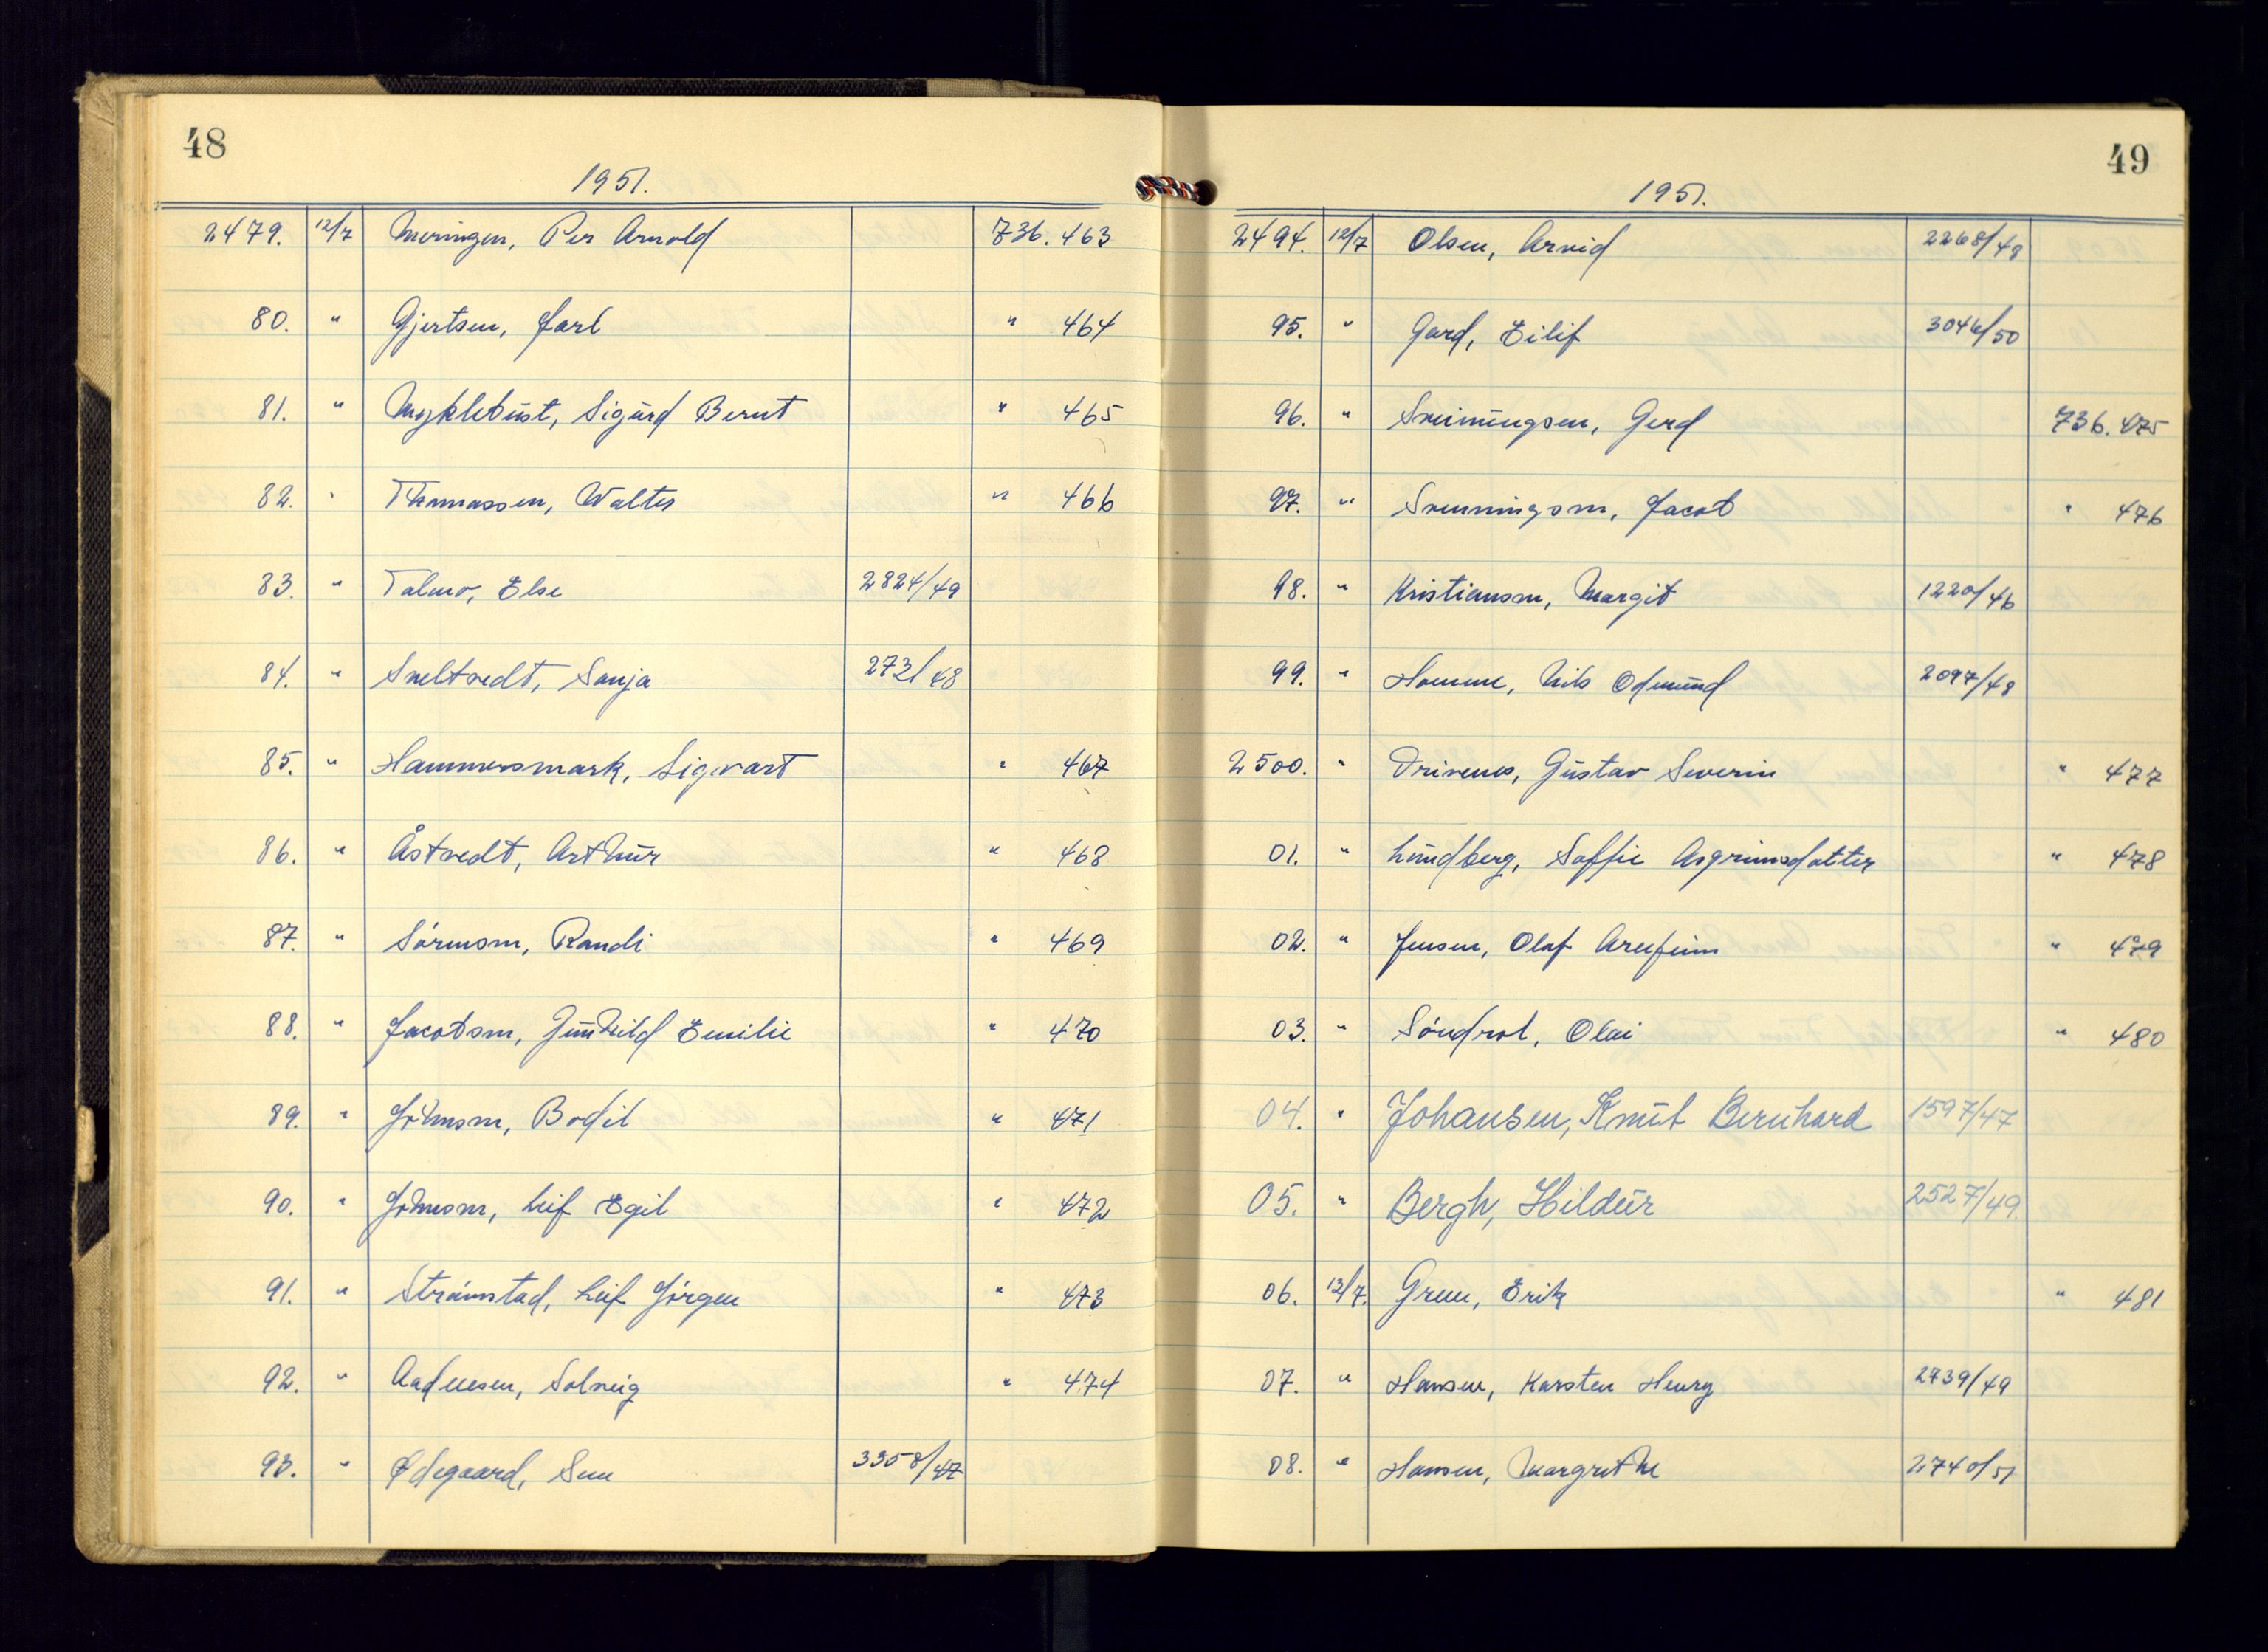 48
1951.
2479. 12/7 Meringen, Per Arnold 736.463
80. " Gjertsen, Jarl " 464
81. " Myklebust, Sigurd Bernt " 465
82. " Thomassen, Walter " 466
83. " Talmo, Else 2824/49
84. " Sneltvedt, Sonja 273/48
85. " Hammersmark, Sigvart " 467
86. " Åstvedt, Arthur " 468
87. " Sörensen, Randi " 469
88. " Jacobsen, Gunhild Emilie " 470
89. " Johnsen, Bodil " 471
90. " Johnsen, Leif Egil " 472
91. " Strömstad, Leif Jörgen " 473
92. " Aadnesen, Solveig " 474
93. " Ødegaard, Svein 3358/47
49
1951.
2494. 12/7 Olsen, Arvid 2268/48
95. " Gard, Eilif 3046/50
96. " Svenningsen, Gerd 736.475
97. " Svenningsen, Jacob " 476
98. " Kristiansen, Margit 1220/46
99. " Homme, Nils Odmund 2097/48
2500. " Drivenes, Gustav Severin " 477
01. " Lundberg, Soffie Asgrimsdatter " 478
02. " Jensen, Olaf Arnfinn " 479
03. " Söndrol, Olai " 480
04. " Johansen, Knut Bernhard 1597/47
05. " Bergh, Hildur 2527/49.
06. 13/7. Gren, Erik " 481
07. " Hansen, Karsten Henry 2739/49
08. " Hansen, Margrethe 2740/51